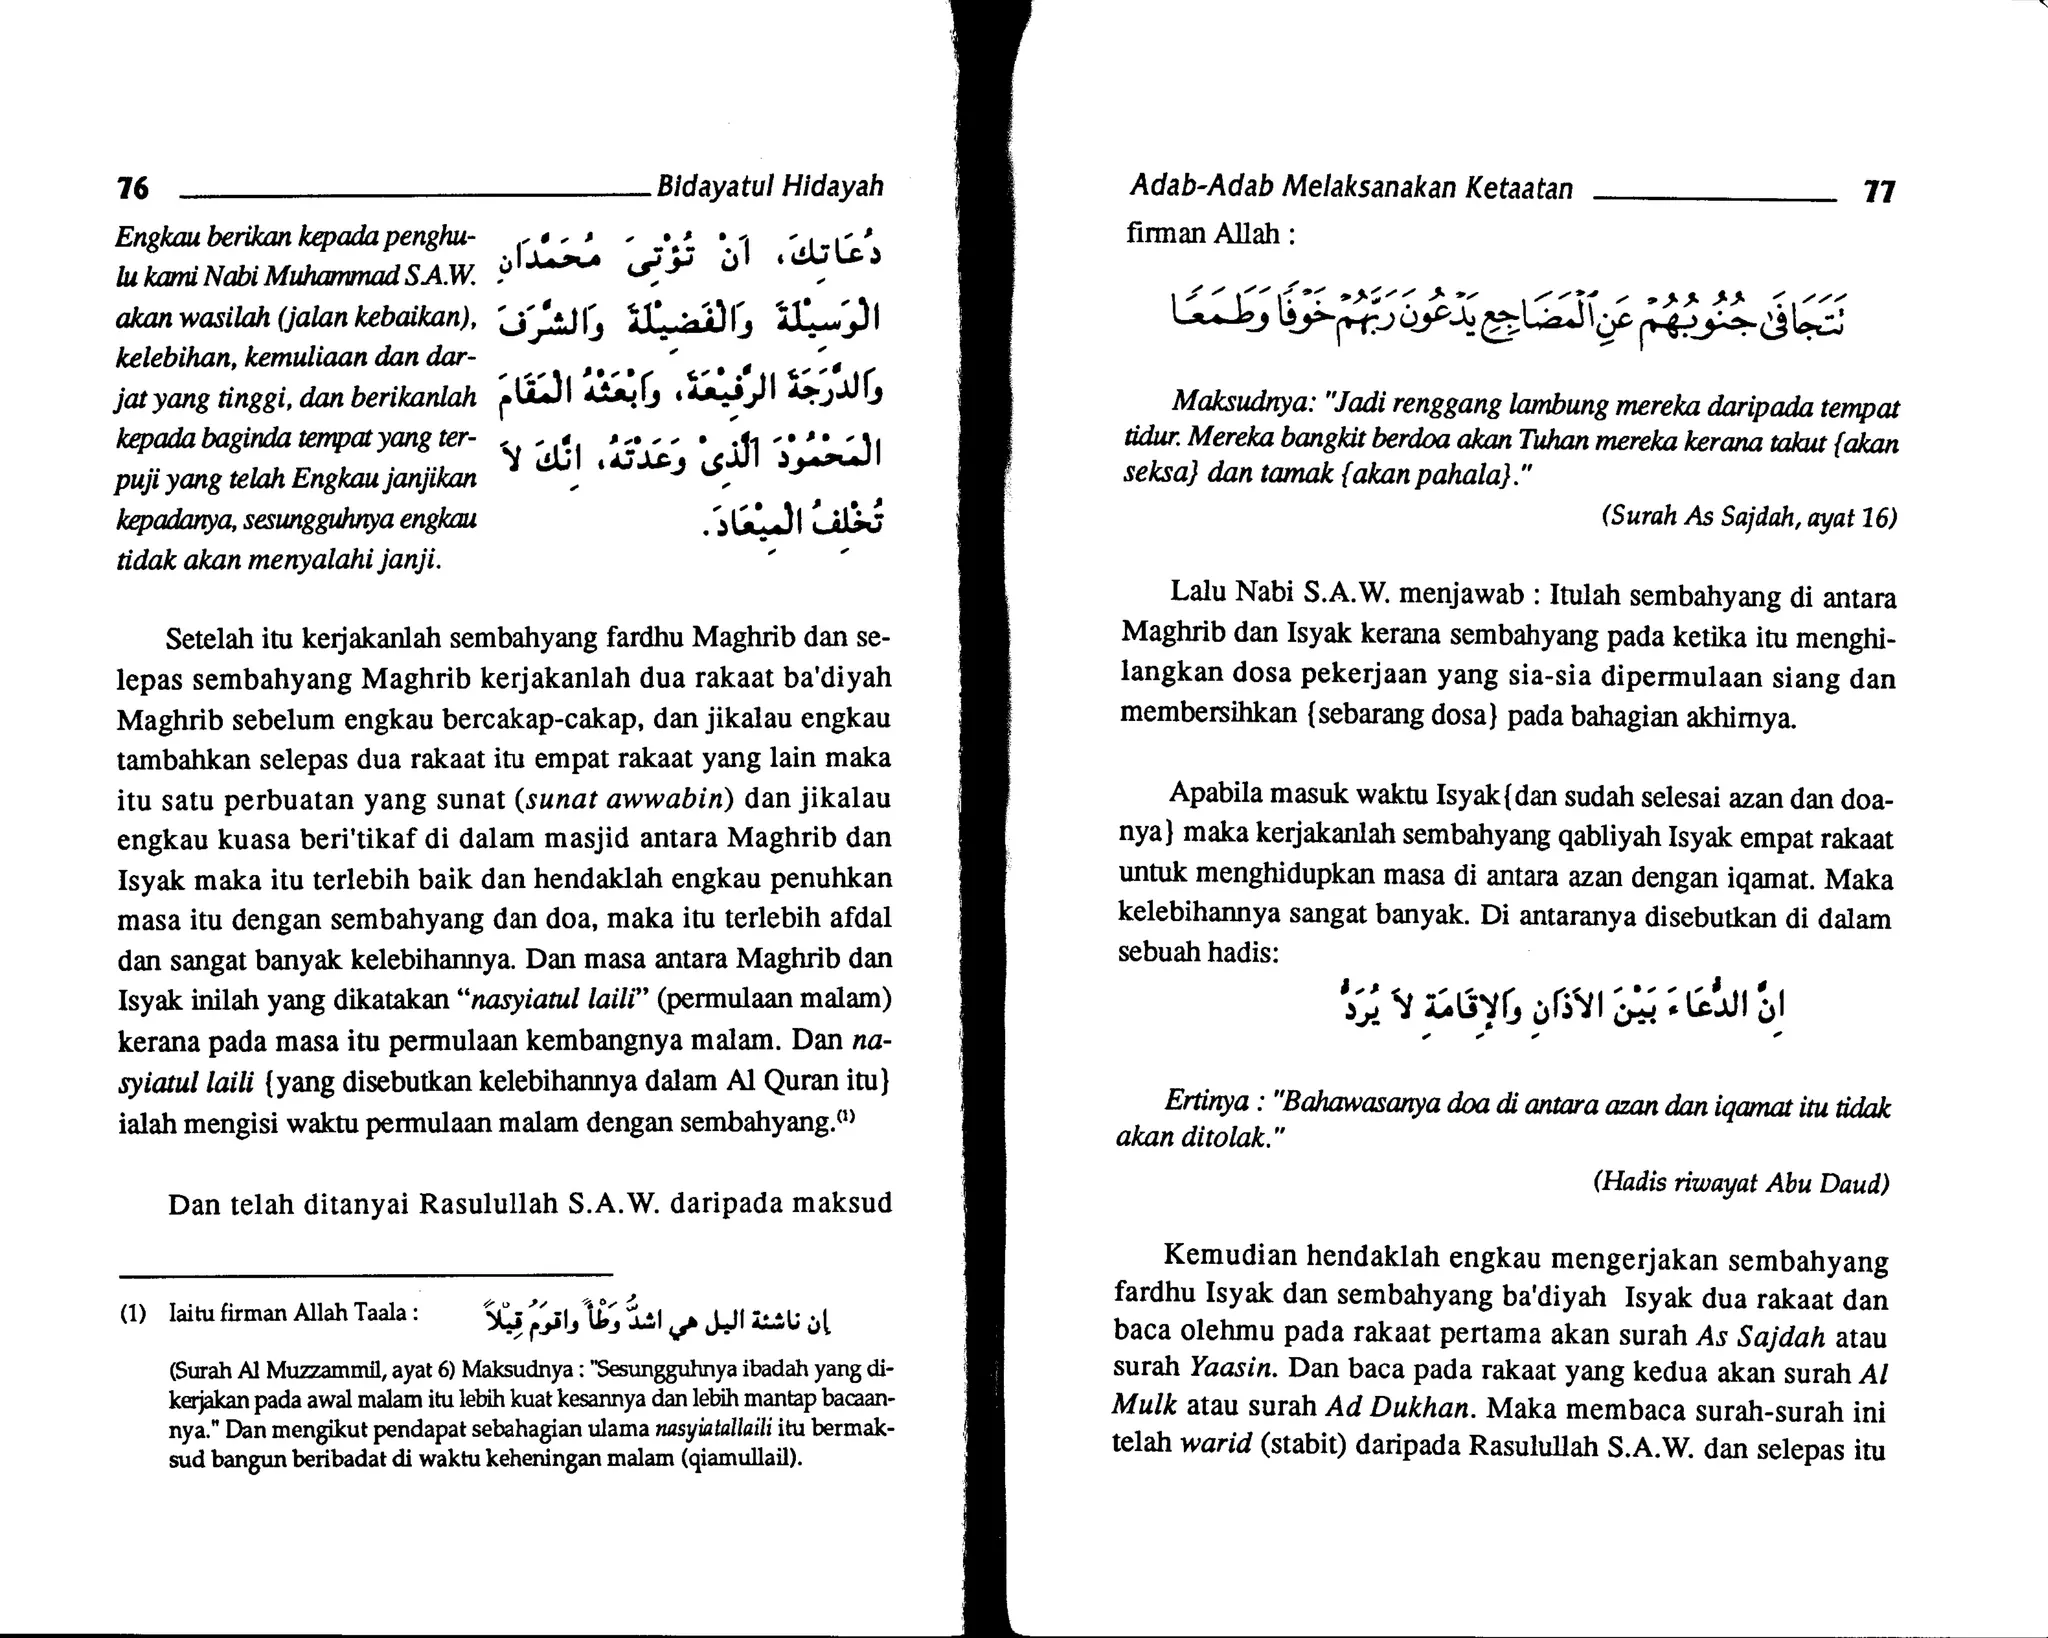 76 Bidayatul Hidayah
Engkau berikan kepada penghu-
lu kami Nabi Muhammad S.A.W.
akan wasilah (jalan kebaikan),
kelebihan, kemuliaan dan dar-
jat yang tinggi, dan berikanlah
kepada baginda tempat yang ter-
puji yang telah Engkau janjikan
kepadanya, sesungguhnya engkau
tidak akan menyalahi janji.
دُعَاتِكَ، اَنْ تُؤْتِىَ مُحَمَّدَانِ
الْوَسِيْلَةَ وَالْفَضِيْلَةَ وَالشَّرَفَ
وَالدَّرَجَةَ الرَّفِيْعَةَ، وَابْعَثْهُ الْمَقَامَ
الْمَحْمُوْدَ الَّذِى وَعَدْتَهُ، اِنَّكَ لاَ
تُخْلِفُ الْمِيْعَادَ.
Setelah itu kerjakanlah sembahyang fardhu Maghrib dan se-
lepas sembahyang Maghrib kerjakanlah dua rakaat ba'diyah
Maghrib sebelum engkau bercakap-cakap, dan jikalau engkau
tambahkan selepas dua rakaat itu empat rakaat yang lain maka
itu satu perbuatan yang sunat (sunat awwabin) dan jikalau
engkau kuasa beri'tikaf di dalam masjid antara Maghrib dan
Isyak maka itu terlebih baik dan hendaklah engkau penuhkan
masa itu dengan sembahyang dan doa, maka itu terlebih afdal
dan sangat banyak kelebihannya. Dan masa antara Maghrib dan
Isyak inilah yang dikatakan “nasyiatul laili” (permulaan malam)
kerana pada masa itu permulaan kembangnya malam. Dan na-
syiatul laili {yang disebutkan kelebihannya dalam Al Quran itu}
ialah mengisi waktu permulaan malam dengan sembahyang.(1)
Dan telah ditanyai Rasulullah S.A.W. daripada maksud
(1) Iaitu firman Allah Taala : إن ناشئة اليل هي اشدُّ وَطْأً واقوَمُ قِيْلاً
(Surah Al Muzzammil, ayat 6) Maksudnya : "Sesungguhnya ibadah yang di-
kerjakan pada awal malam itu lebih kuat kesannya dan lebih mantap bacaan-
nya." Dan mengikut pendapat sebahagian ulama nasyiatallaili itu bermak-
sud bangun beribadat di waktu keheningan malam (qiamullail).
Adab-Adab Melaksanakan Ketaatan 77
firman Allah :
نَتَجَافَىٰ جُنُوبُهُمْ عَنِ ٱلْمَضَاجِعِ يَدْعُونَ رَبَّهُمْ خَوْفًا وَطَمَعًا
Maksudnya: "Jadi renggang lambung mereka daripada tempat
tidur. Mereka bangkit berdoa akan Tuhan mereka kerana takut {akan
seksa} dan tamak {akan pahala}."
(Surah As Sajdah, ayat 16)
Lalu Nabi S.A.W. menjawab : Itulah sembahyang di antara
Maghrib dan Isyak kerana sembahyang pada ketika itu menghi-
langkan dosa pekerjaan yang sia-sia dipermulaan siang dan
membersihkan {sebarang dosa} pada bahagian akhirnya.
Apabila masuk waktu Isyak{dan sudah selesai azan dan doa-
nya} maka kerjakanlah sembahyang qabliyah Isyak empat rakaat
untuk menghidupkan masa di antara azan dengan iqamat. Maka
kelebihannya sangat banyak. Di antaranya disebutkan di dalam
sebuah hadis:
اِنَّ الدُّعَاءَ بَيْنَ الاَذَانِ وَالاِقَامَةِ لاَ يُرَدُّ
Ertinya : "Bahawasanya doa di antara azan dan iqamat itu tidak
akan ditolak."
(Hadis riwayat Abu Daud)
Kemudian hendaklah engkau mengerjakan sembahyang
fardhu Isyak dan sembahyang ba'diyah Isyak dua rakaat dan
baca olehmu pada rakaat pertama akan surah As Sajdah atau
surah Yaasin. Dan baca pada rakaat yang kedua akan surah Al
Mulk atau surah Ad Dukhan. Maka membaca surah-surah ini
telah warid (stabit) daripada Rasulullah S.A.W. dan selepas itu